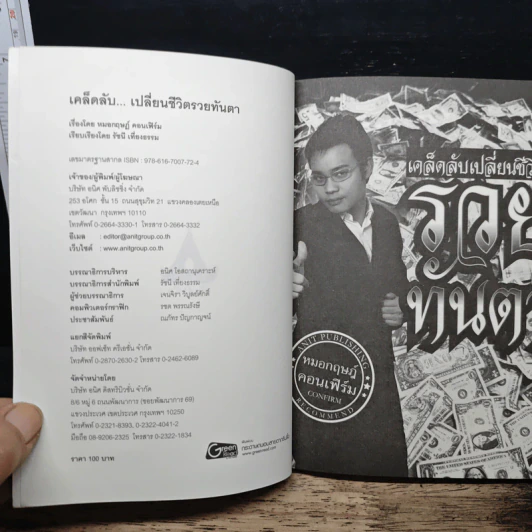 เคล็ดลับ... เปลี่ยนชีวิตรวยทันตา
เรื่องโดย หมอกฤษฎ์ คอนเฟิร์ม
เรียบเรียงโดย รัชนี เที่ยงธรรม
เลขมาตรฐานสากล ISBN : 978-616-7007-72-4
เจ้าของ/ผู้พิมพ์/ผู้โฆษณา
บริษัท อนิศ พับลิชชิ่ง จำกัด
253 อโศก ชั้น 15 ถนนสุขุมวิท 21 แขวงคลองเตยเหนือ
เขตวัฒนา กรุงเทพฯ 10110
โทรศัพท์ 0-2664-3330-1 โทรสาร 0-3664-3332
อีเมล : editor@anitgroup.co.th
เว็บไซต์ : www.anitgroup.co.th
บรรณาธิการบริหาร อนิศ โอสถานุเคราะห์
บรรณาธิการสำนักพิมพ์ รัชนี เที่ยงธรรม
ผู้ช่วยบรรณาธิการ เจนจิรา วิบูลย์ศักดิ์
คอมพิวเตอร์กราฟิก รชต พรรณรังษี
ประชาสัมพันธ์ ณภัทร ปัญกาญจน์
แยกสีจัดพิมพ์
บริษัท ออฟเซ็ท ครีเอชั่น จำกัด
โทรศัพท์ 0-2870-2630-2 โทรสาร 0-2462-6089
จัดจำหน่ายโดย
บริษัท อนิศ ดิสทริบิวชั่น จำกัด
8/6 หมู่ 6 ถนนพัฒนาการ (ซอยพัฒนาการ 69)
แขวงประเวศ เขตประเวศ กรุงเทพฯ 10250
โทรศัพท์ 0-2321-8393, 0-2322-4041-2
มือถือ 08-9206-2325 โทรสาร 0-2322-1834
ราคา 100 บาท
Green
Read
www.greenread.com
เคล็ดลับเปลี่ยนชีวิ
รวย
ทันต
ANIT PUBLISHING
หมอกฤษฎ์
คอนเฟิร์ม
CONFIRM
RECOMMEND